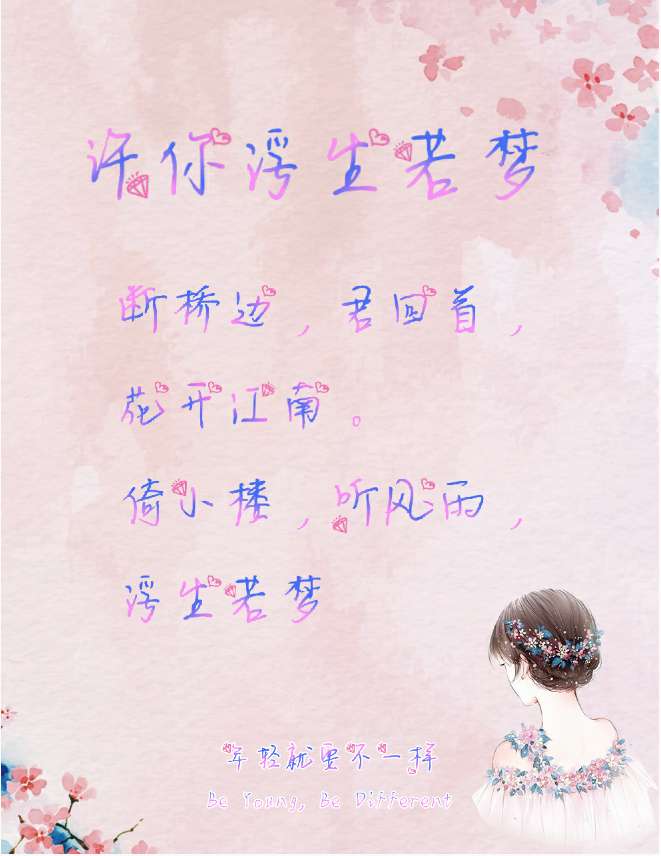 许你浮生若梦
断桥边，君回首，
花开江南。
倚小楼，听风雨，
浮生若梦
年轻就要不一样
Be Young, Be Different